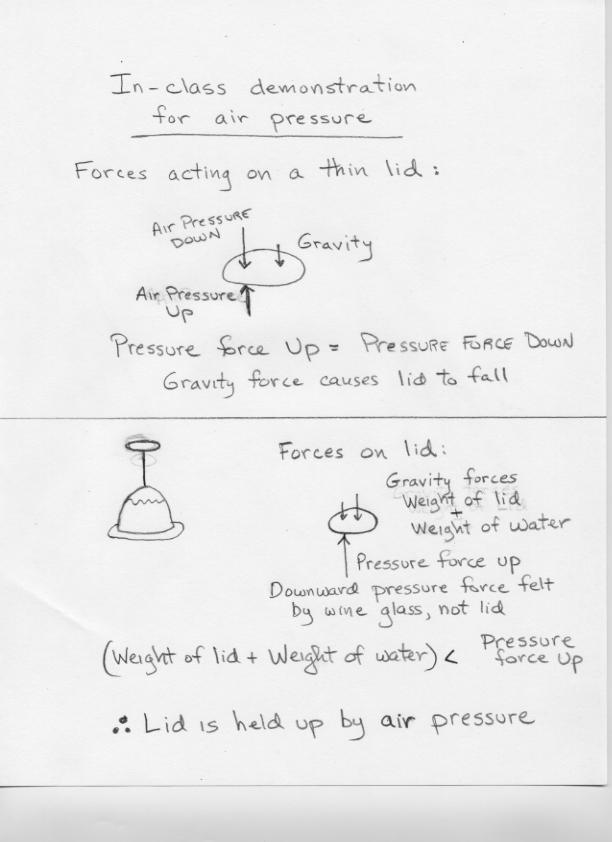 In-class demonstration
for air pressure
Forces acting on a thin lid:
AIR PRESSURE
DOWN
Gravity
Air Pressure
Up
Pressure force Up = PRESSURE FORCE DOWN
Gravity force causes lid to fall
Forces on lid:
Gravity forces
Weight of lid
+
Weight of water
Pressure force up
Downward pressure force felt
by wine glass, not lid
(Weight of lid + Weight of water) < Pressure
force up
∴ Lid is held up by air pressure